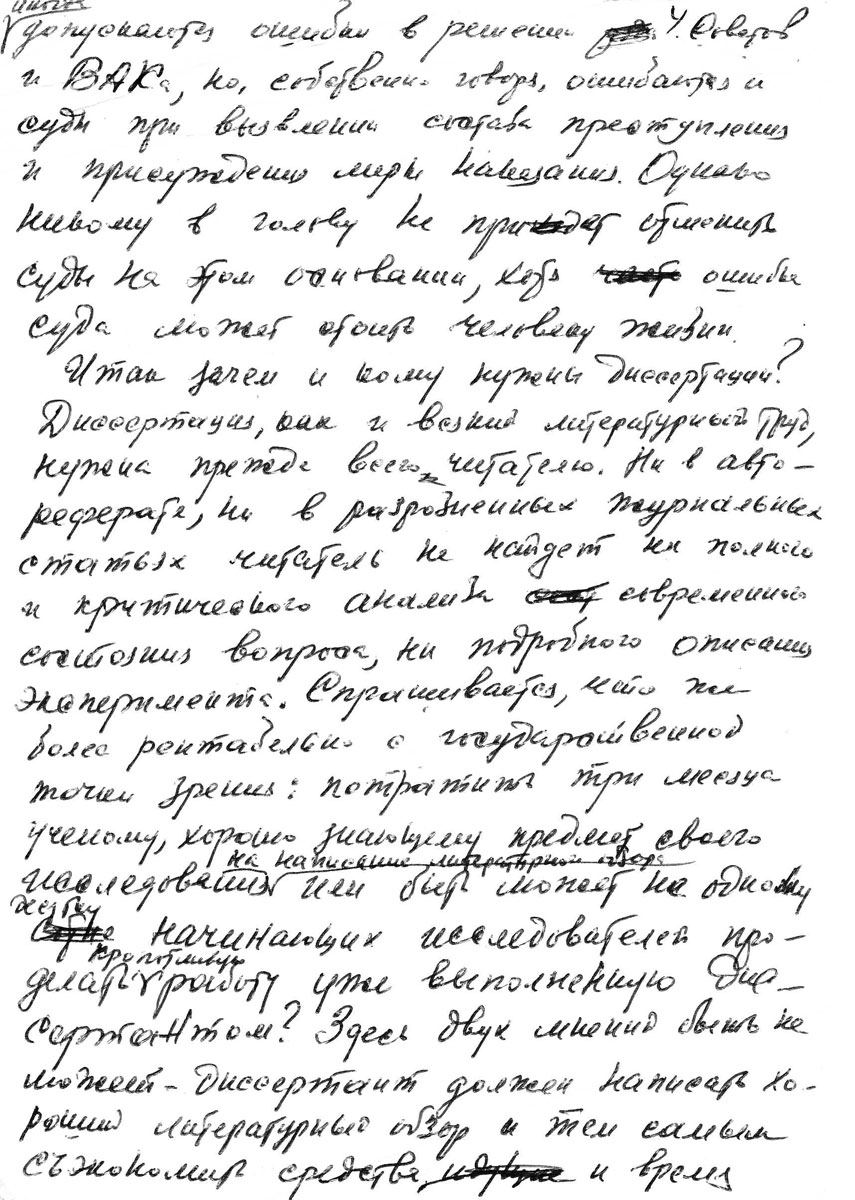 иногда
допускаются ошибки в решении У. Советов
и ВАКа, но, собственно говоря, ошибаются и
суды при выявлении состава преступления
и присуждении меры наказания. Однако
никому в голову не придет отменить
суды на этом основании, хотя ошибка
суда может стоить человеку жизни.
Итак зачем и кому нужны диссертации?
Диссертация, как и всякий литературный труд,
нужна прежде всего читателю. Ни в авто-
реферате, ни в разрозненных журнальных
статьях читатель не найдет ни полного
и критического анализа современного
состояния вопроса, ни подробного описания
эксперимента. Спрашивается, что же
более рентабельно с государственной
точки зрения: потратить три месяца
ученому, хорошо знающему предмет своего
на написание литературного обзора
исследования или быть может не одному
десятку
начинающих исследователей про-
кропотливую
делать работу уже выполненную дис-
сертантом? Здесь двух мнений быть не
может - диссертант должен написать хо-
роший литературный обзор и тем самым
съэкономить средства и время